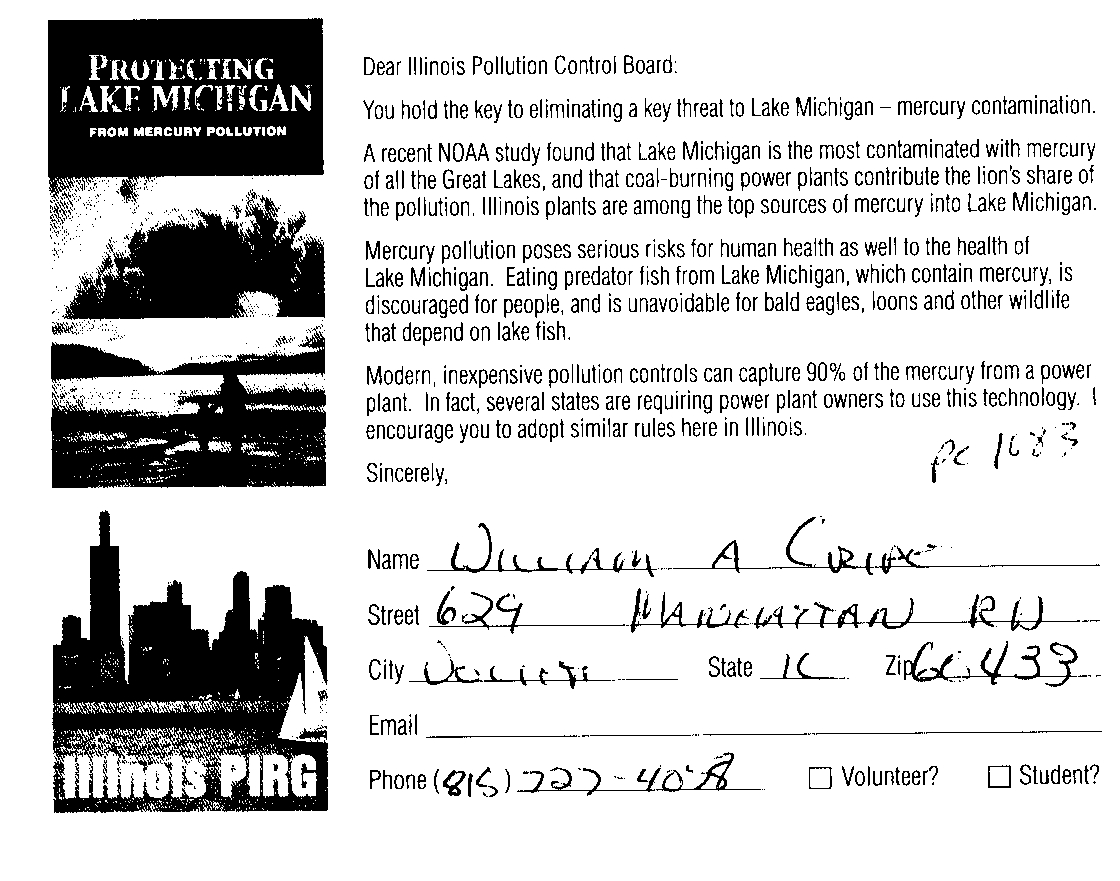 PROTECTING
LAKE MICHIGAN
FROM MERCURY POLLUTION
Illinois PIRG
Dear Illinois Pollution Control Board:
You hold the key to eliminating a key threat to Lake Michigan – mercury contamination.
A recent NOAA study found that Lake Michigan is the most contaminated with mercury
of all the Great Lakes, and that coal-burning power plants contribute the lion's share of
the pollution. Illinois plants are among the top sources of mercury into Lake Michigan.
Mercury pollution poses serious risks for human health as well to the health of
Lake Michigan. Eating predator fish from Lake Michigan, which contain mercury, is
discouraged for people, and is unavoidable for bald eagles, loons and other wildlife
that depend on lake fish.
Modern, inexpensive pollution controls can capture 90% of the mercury from a power
plant. In fact, several states are requiring power plant owners to use this technology. I
encourage you to adopt similar rules here in Illinois.
Sincerely,
PC
Name WILLIAM A CRIPE
Street 629 MANHATTAN RD
City JOLIET State IL Zip 60433
Email
Phone (815) 727-
Volunteer? Student?